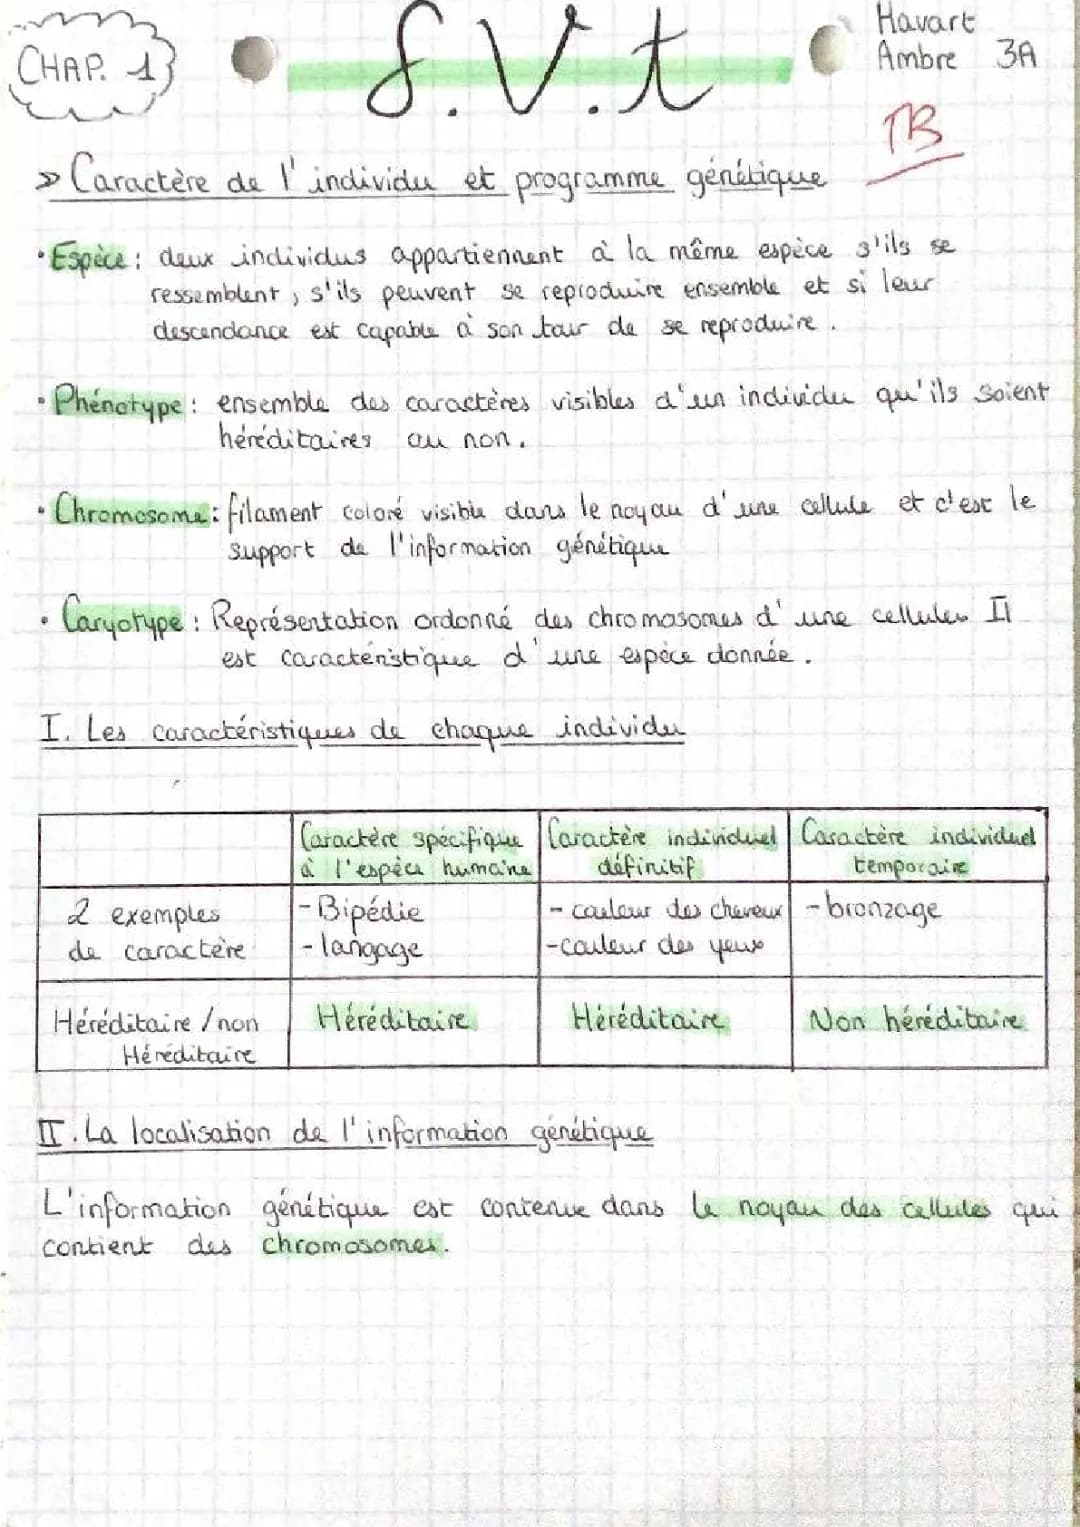 CHAP. 1
S.V.t
Havart
Ambre 3A
TB
» Caractère de l'individu et programme génétique
• Espèce : deux individus appartiennent à la même espèce s'ils se
ressemblent, s'ils peuvent se reproduire ensemble et si leur
descendance est capable à son tour de se reproduire.
• Phénotype : ensemble des caractères visibles d'un individu qu'ils soient
héréditaires ou non.
• Chromosome : filament coloré visible dans le noyau d'une cellule et c'est le
support de l'information génétique
• Caryotype : Représentation ordonné des chromosomes d'une cellules Il
est caractéristique d'une espèce donnée.
I. Les caractéristiques de chaque individu
Caractère spécifique à l'espèce humaine
Caractère individuel définitif
Caractère individuel temporaire
2 exemples de caractère
- Bipédie
- langage
- couleur des cheveux
- couleur des yeux
- bronzage
Héréditaire / non Héréditaire
Héréditaire
Héréditaire
Non héréditaire
II. La localisation de l'information génétique
L'information génétique est contenue dans le noyau des cellules qui
contient des chromosomes.